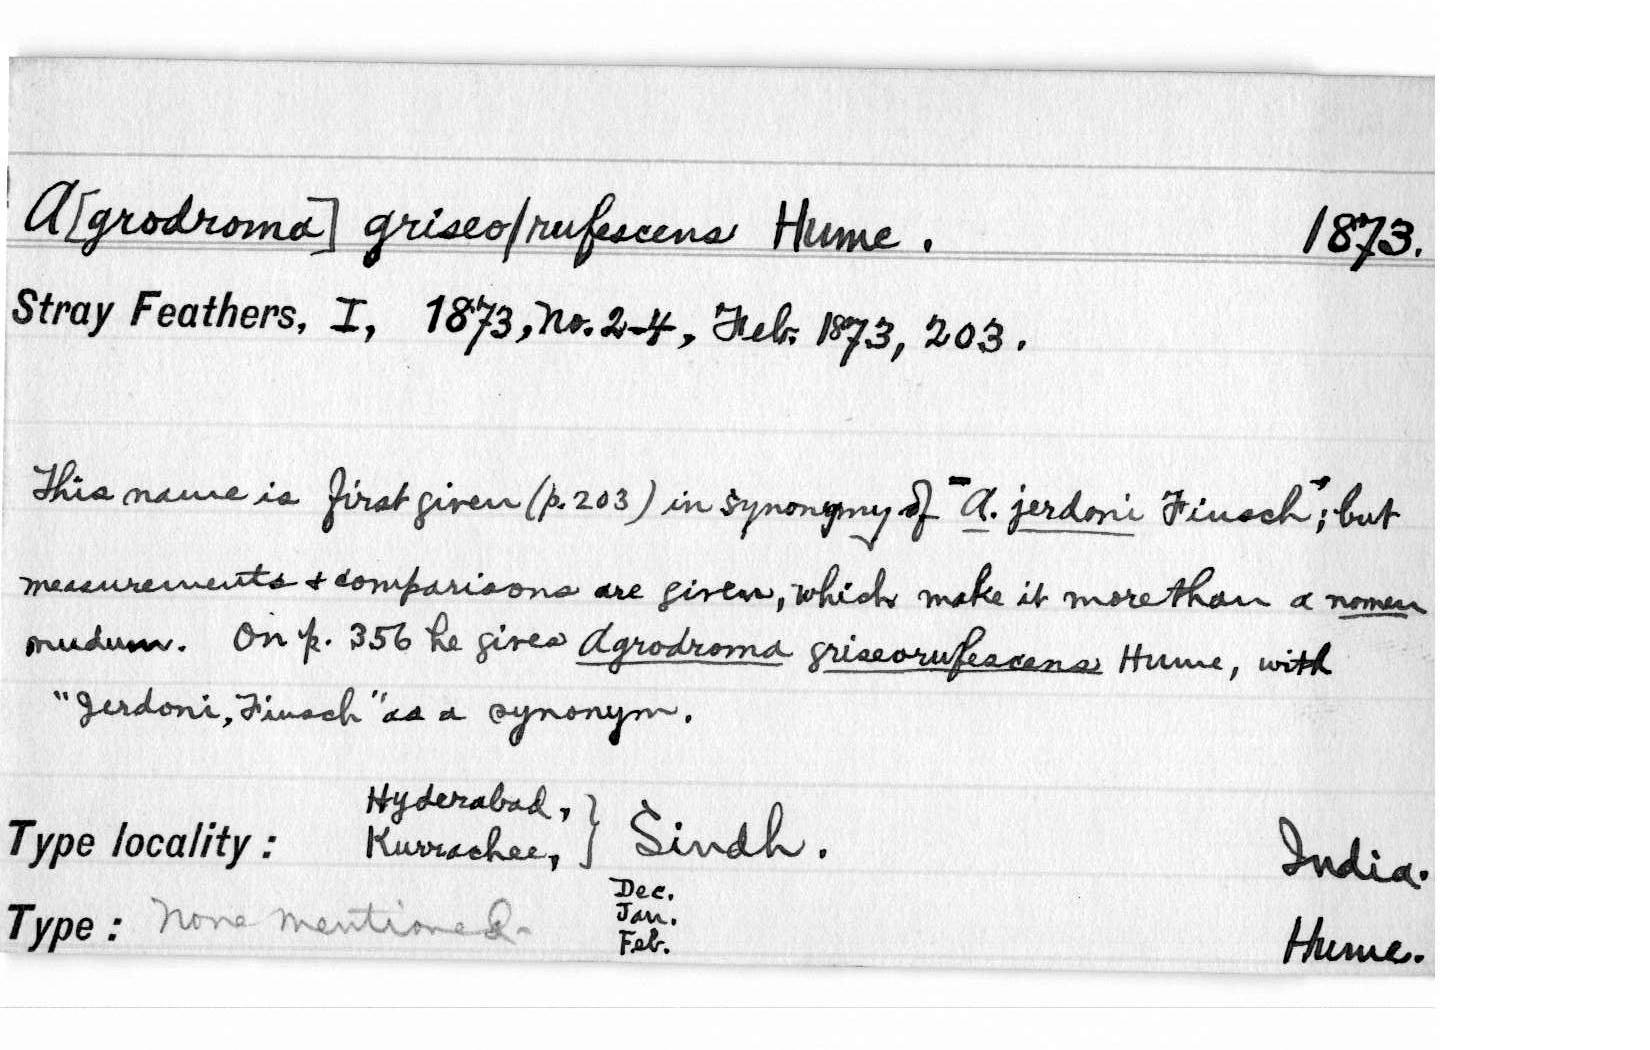 A[grodroma] griseo/rufescens Hume. 1873.
Stray Feathers, I, 1873, No. 2-4, Feb. 1873, 203.
This name is first given (p. 203) in synonymy of "A. jerdoni Finsch"; but
measurements + comparisons are given, which make it more than a nomen
nudum. On p. 356 he gives Agrodroma griseorufescens Hume, with
"Jerdoni, Finsch" as a synonym.
Hyderabad,
Type locality: Kurrachee, } Sindh. India.
Dec.
Type: None mentioned. Jan. Hume.
Feb.